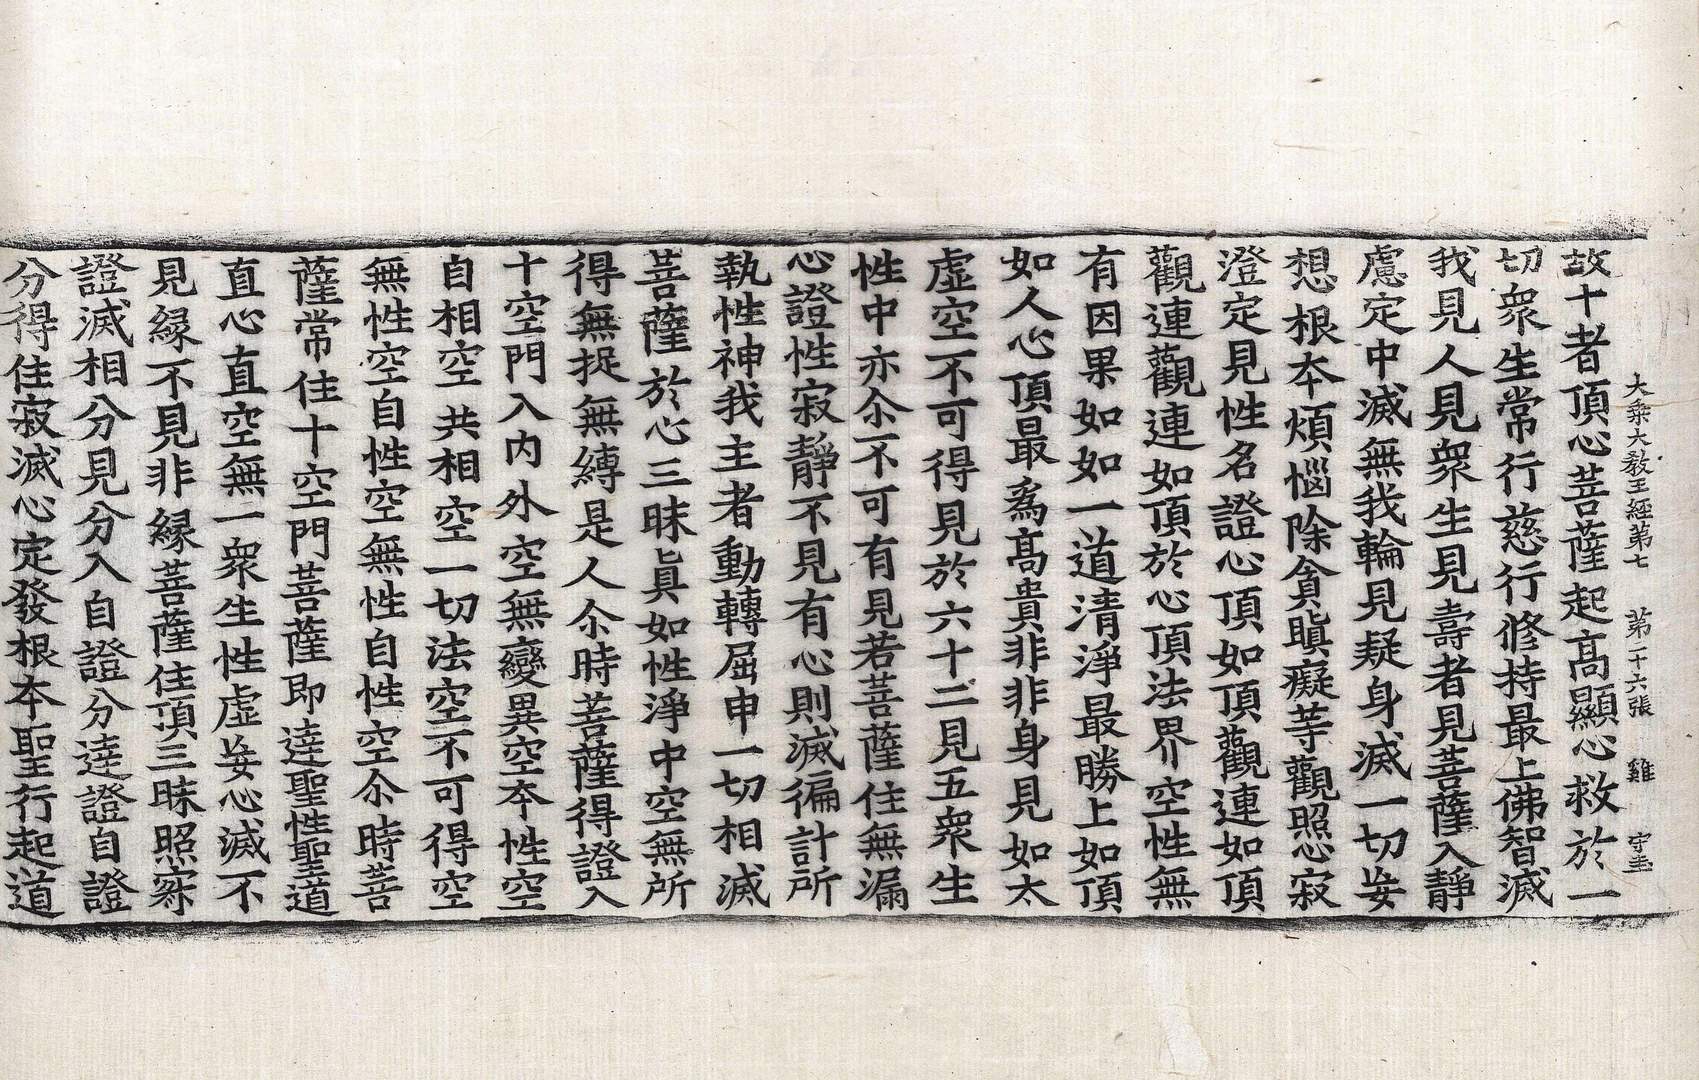 大乘大教王經第七　第二十六張　雞　守圭
故十者頂心菩薩起高顯心救於一
切衆生常行慈行修持最上佛智滅
我見人見衆生見壽者見菩薩入靜
慮定中滅無我輪見疑身滅一切妄
想根本煩惱除貪瞋癡等觀照心寂
澄定見性名證心頂如頂觀連如頂
觀連觀連如頂於心頂法界空性無
有因果如如一道清淨最勝上如頂
如人心頂最爲高貴非非身見如太
虛空不可得見於六十二見五衆生
性中亦尒不可有見若菩薩住無漏
心證性寂靜不見有心則滅徧計所
執性神我主者動轉屈申一切相滅
菩薩於心三昧眞如性淨中空無所
得無捉無縛是人尒時菩薩得證入
十空門入內外空無變異空本性空
自相空共相空一切法空不可得空
無性空自性空無性自性空尒時菩
薩常住十空門菩薩即達聖性聖道
直心直空無一衆生性虛妄心滅不
見緣不見非緣菩薩住頂三昧照寂
證滅相分見分入自證分達證自證
分得住寂滅心定發根本聖行起道